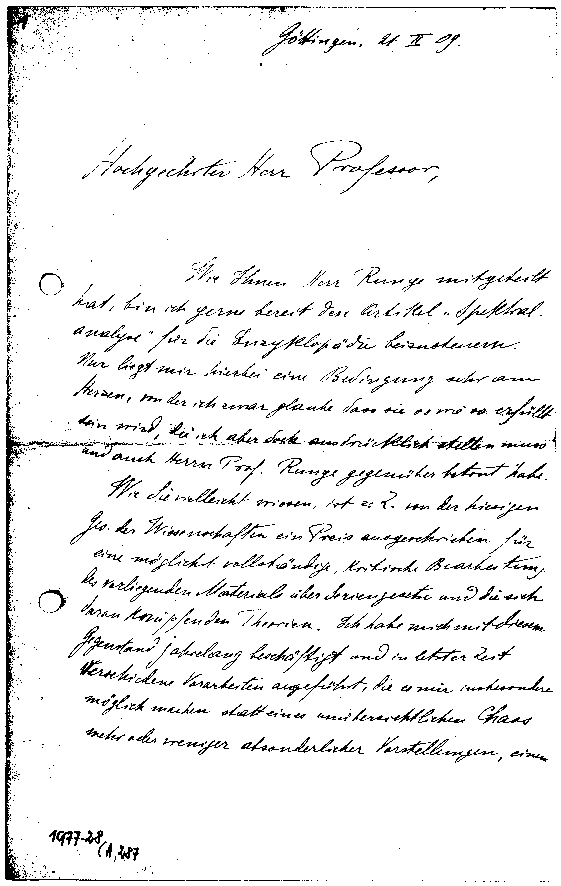 Göttingen. 21. II 09.
Hochgeehrter Herr Professor,
Wie Ihnen Herr Runge mitgeteilt
hat, bin ich gerne bereit den Artikel "Spektral-
analyse" für die Enzyklopädie beizusteuern.
Nur liegt mir hierbei eine Bedingung sehr am
Herzen, von der ich zwar glaube dass sie so wie so erfüllt
sein wird, die ich aber doch ausdrücklich stellen muss
und auch Herrn Prof. Runge gegenüber betont habe.
Wie Sie vielleicht wissen, ist z. Z. von der hiesigen
Ges. der Wissenschaften ein Preis ausgeschrieben für
eine möglichst vollständige, kritische Bearbeitung
des vorliegenden Materials über Seriengesetze und die sich
daran knüpfenden Theorien. Ich habe mich mit diesem
Gegenstand jahrelang beschäftigt und in letzter Zeit
verschiedene Vorarbeiten ausgeführt, die es mir insbesondere
möglich machen statt eines unübersichtlichen Chaos
mehr oder weniger absonderlicher Vorstellungen, einen
1977-28
(A,287